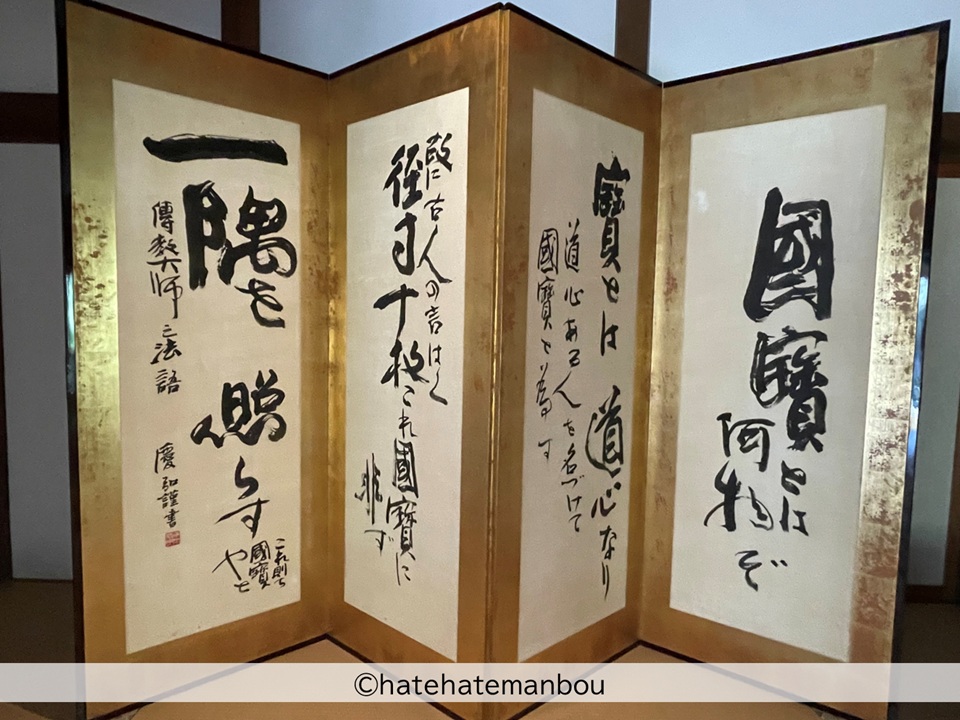 國寶とは
何物ぞ
寶とは道心なり
道心ある人を名づけて
國寶と為す
故に古人の言はく
径寸十枚これ國寶に
非ず
一隅を照らす
これ則ち
國寶
やと
傳教大師之法語 慶弘謹書
©hatehatemanbou